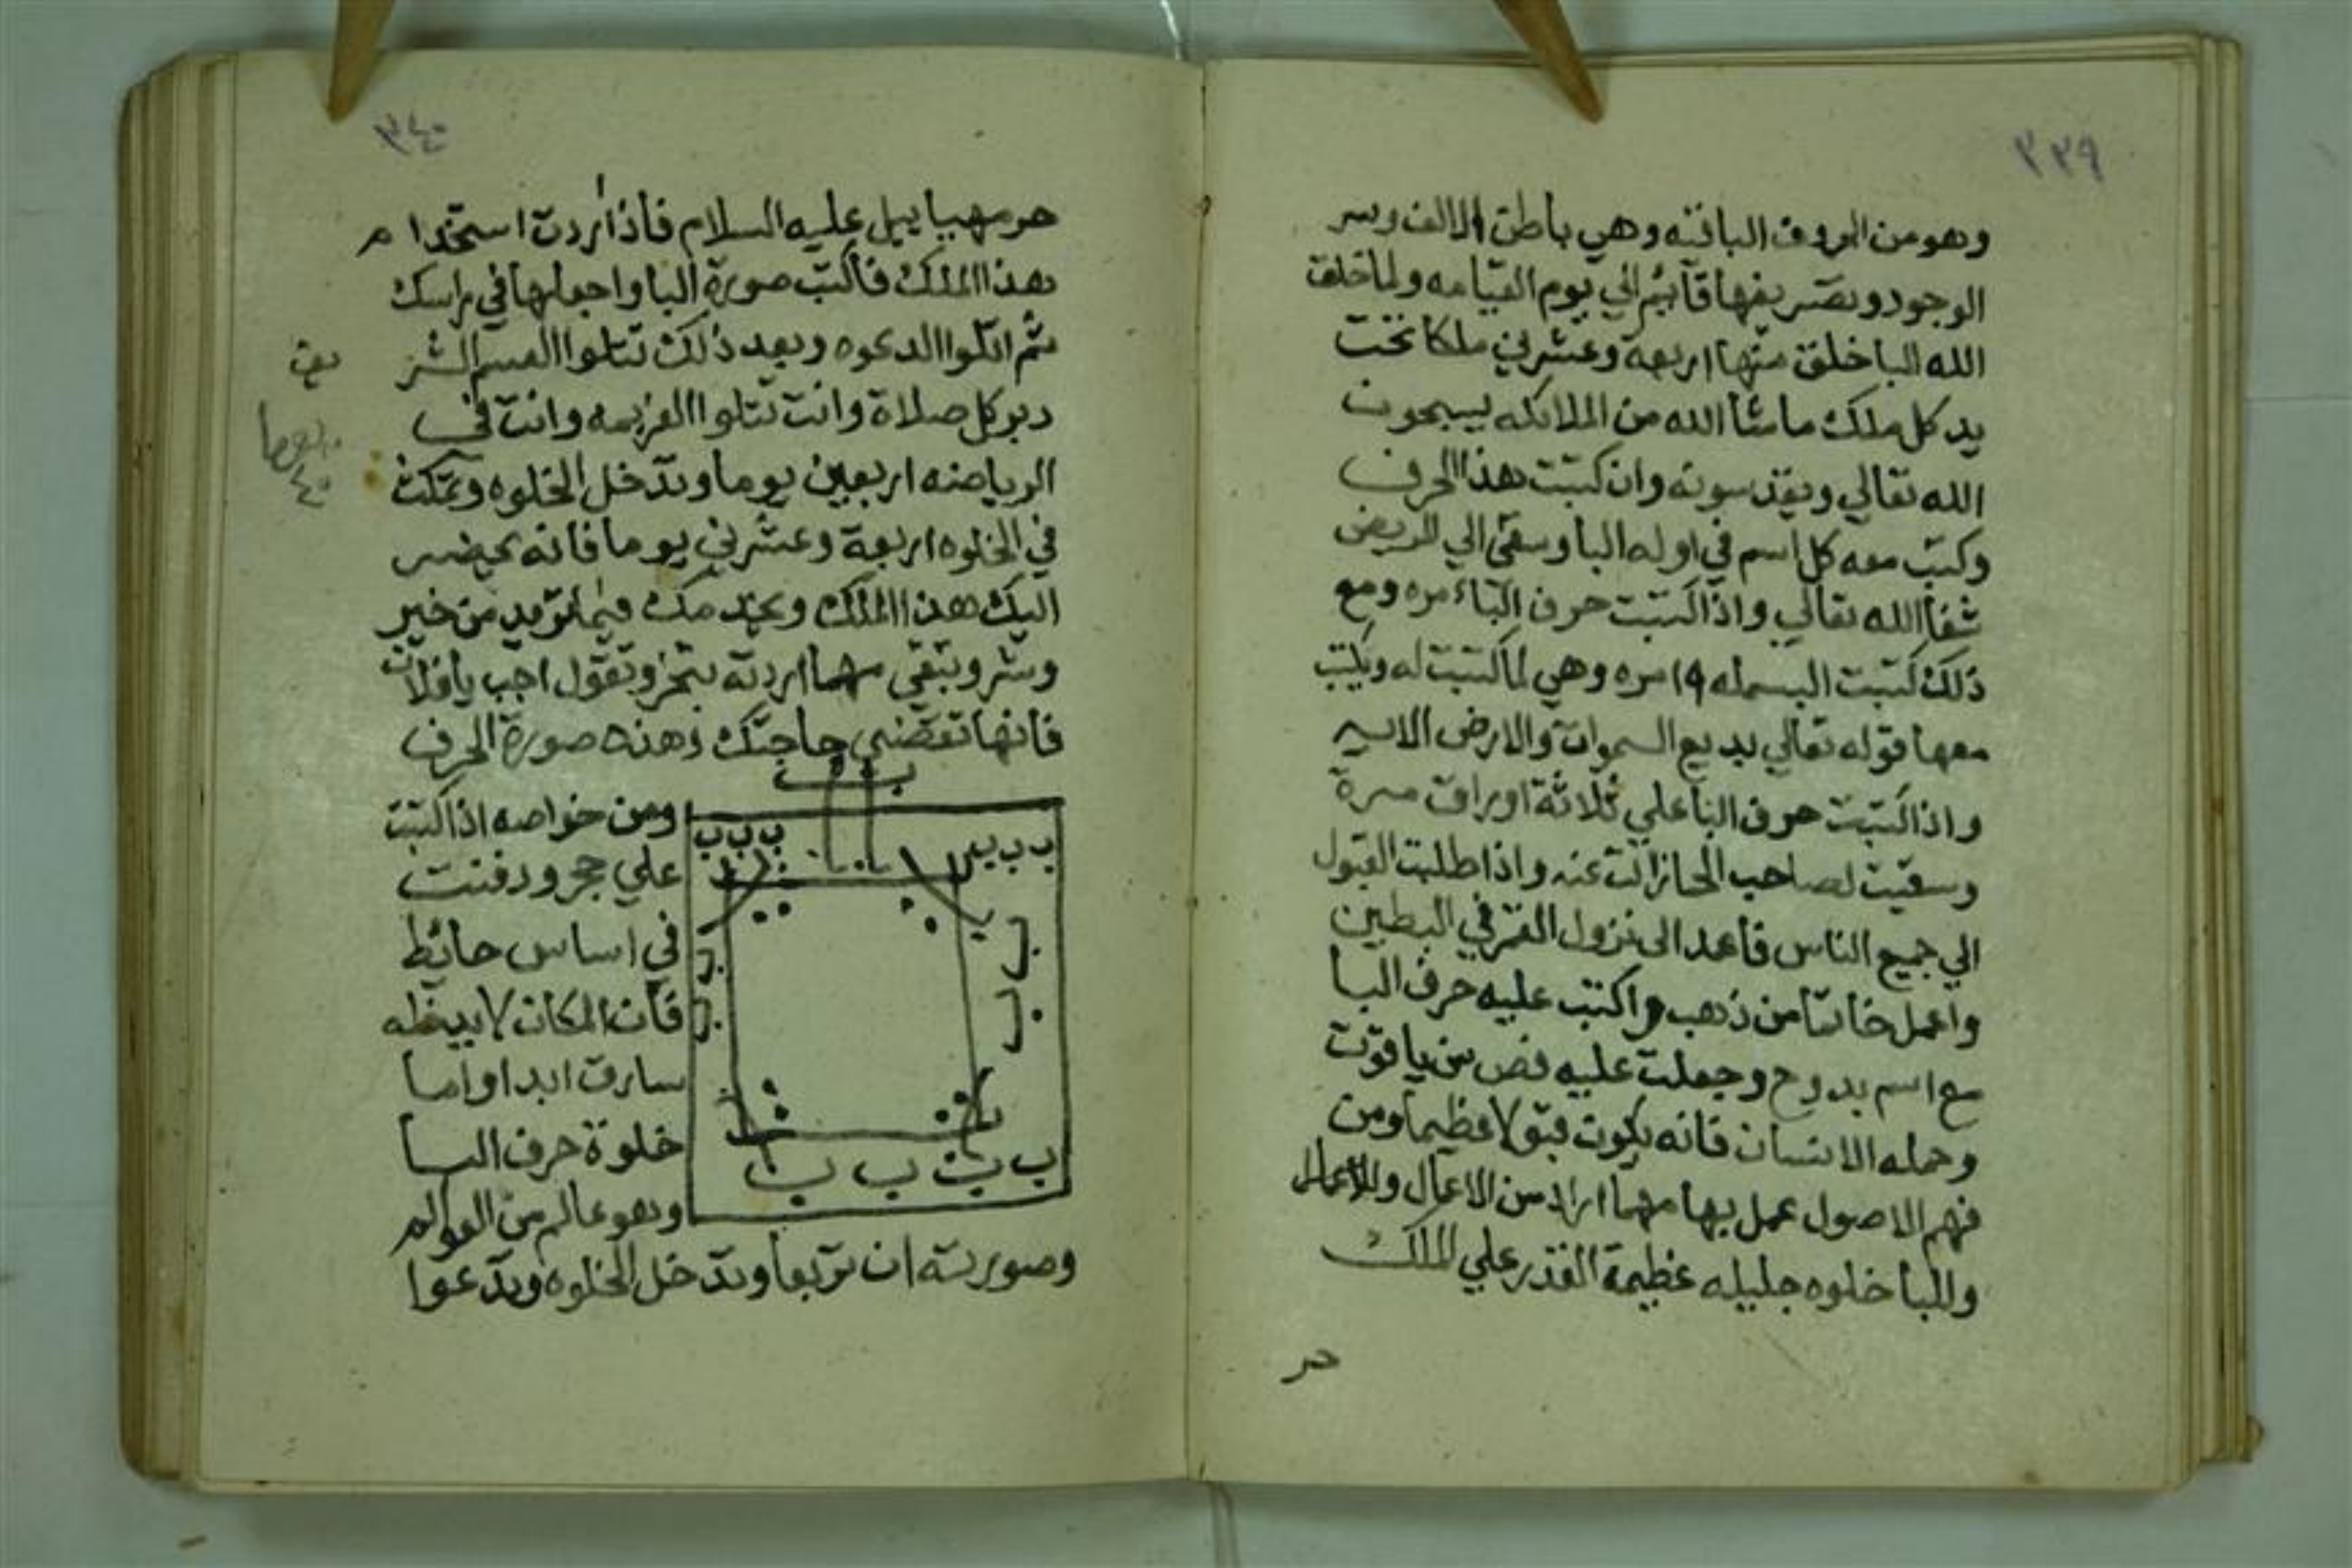 ٣٣٩
وهو من الحروف الباقيه وهي باطن الالف وسر
الوجود وتصريفها قائم الي يوم القيامه ولما خلق
الله البا خلق منها اربعة وعشرين ملكا تحت
يد كل ملك ما شا الله من الملائكه يسبحون
الله تعالي ويقدسونه وان كتبت هذا الحرف
وكتب معه كل اسم في اوله البا وسقي الي المريض
شفا الله تعالي واذا كتبت حرف الباء مره ومع
ذلك كتبت البسمله ١٩ مره وهي لما كتبت له ويكتب
معها قوله تعالي بديع السموات والارض الايه
واذا كتبت حرف البا علي ثلاثة اوراق مرة
وسقيت لصاحب الحما زالت عنه واذا طلبت القبول
الي جميع الناس فاعمد الى نزول القمر في البطين
واعمل خاتما من ذهب واكتب عليه حرف البا
مع اسم بدوح وجعلت عليه فص من ياقوت
وحمله الانسان فانه يكون قبولا عظيما ومن
فهم الاصول عمل بها مهما اراد من الاعمال
وللبا خلوه جليله عظيمة القدر علي الملك
حر
٣٤٠
حرمهياييل عليه السلام فاذا اردت استخدام
هذا الملك فاكتب صورة البا واجعلها في راسك
ثم اتلوا الدعوه وبعد ذلك تتلوا القسم الشر
يف
دبر كل صلاة وانت تتلوا العزيمه وانت في
الرياضه اربعين يوما وتدخل الخلوه وتمكث
٤٠
في الخلوه اربعة وعشرين يوما فانه يحضر
اليك هذا الملك ويخدمك فيما تريد من خير
وشر وتبقي مهما اردته تبخر وتقول اجب يا فلان
فانها تقضي حاجتك وهذه صورة الحرف
ب
ب ب ب
ب ب ب
ب
ب
ب
ب
ب ب ب ب
ومن خواصه اذا كتبت
علي حجر ودفنت
في اساس حائط
فان المكان لا يدخله
سارق ابدا واما
خلوة حرف البا
وهو عالم من العوالم
وصورته ان تربعا وتدخل الخلوه وتدعوا